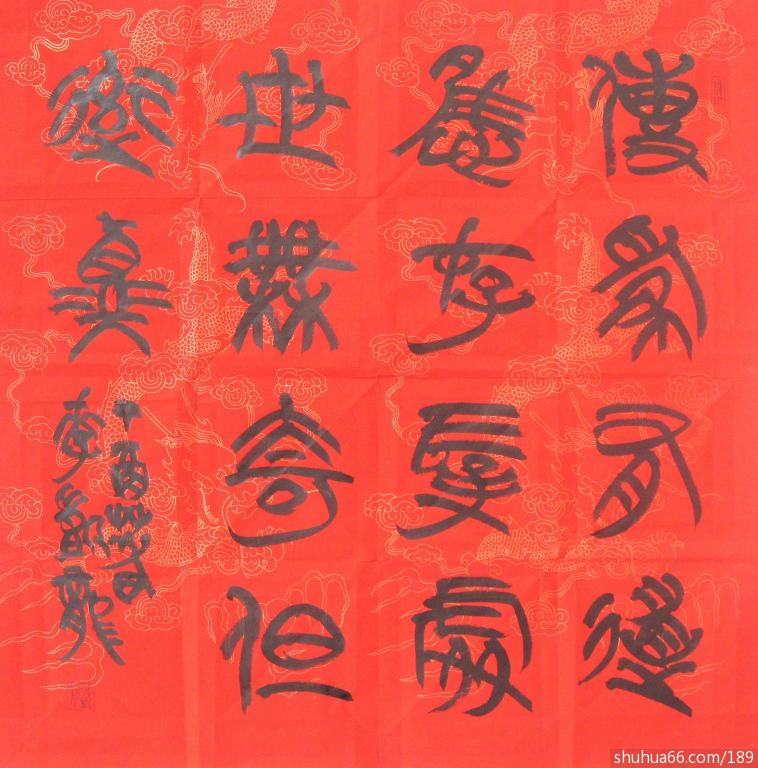 傳家有道
惟存厚處
世無奇但
率真
丁酉
shuhua66.com/189